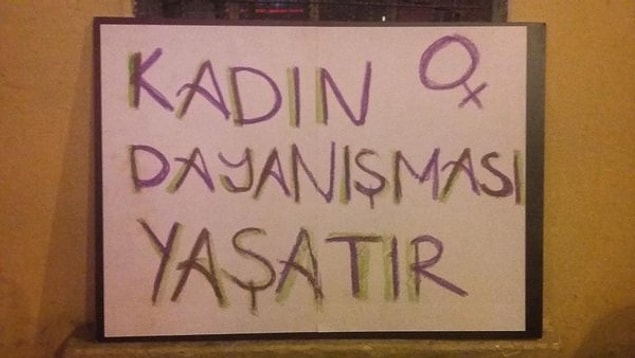 KADIN ♀
DAYANIŞMASI
YAŞATIR